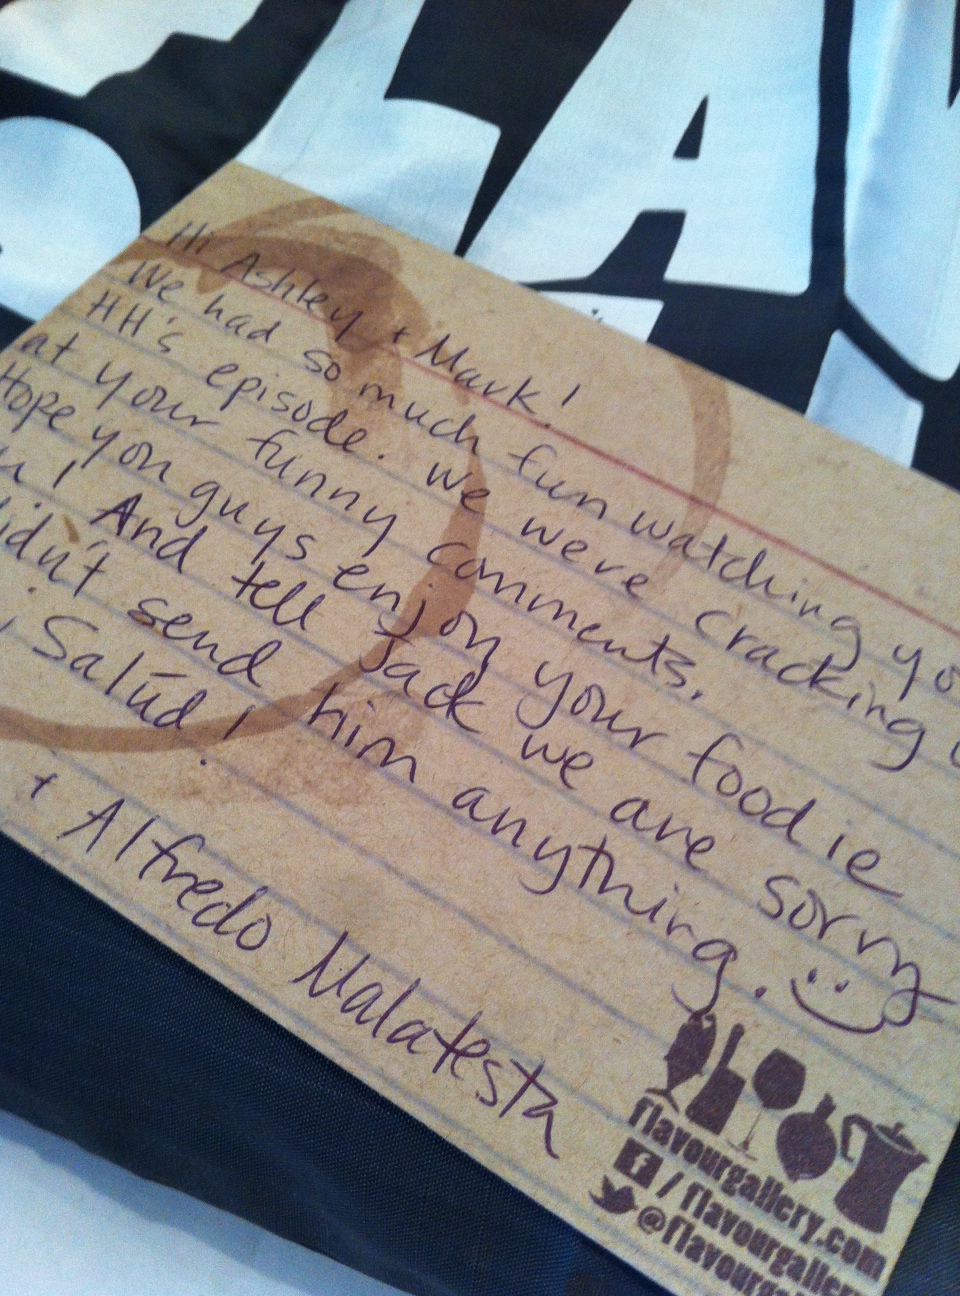 LAV
Hi Ashley + Mark!
We had so much fun watching yo
HH's episode. We were cracking
at your funny comments.
Hope you guys enjoy your foodie
! And tell Jack we are sorry
didn't send him anything.
Salúd!
+ Alfredo Malatesta
flavourgallery.com
f/flavourgaller
@flavourg